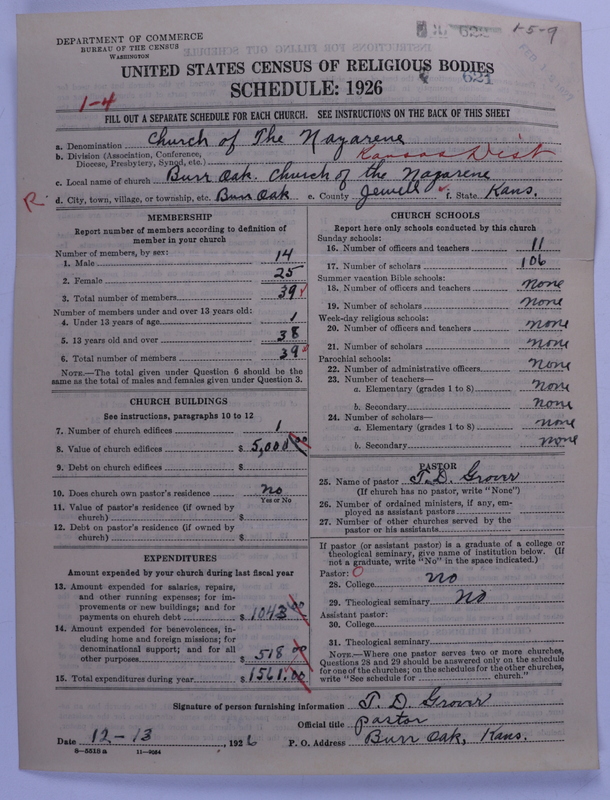 DEPARTMENT OF COMMERCE
BUREAU OF THE CENSUS
WASHINGTON
1-5-9
621
UNITED STATES CENSUS OF RELIGIOUS BODIES
SCHEDULE: 1926
1-4
FILL OUT A SEPARATE SCHEDULE FOR EACH CHURCH. SEE INSTRUCTIONS ON THE BACK OF THIS SHEET
a. Denomination Church of The Nazarene
b. Division (Association, Conference, Diocese, Presbytery, Synod, etc.) Kansas Dist
c. Local name of church Burr Oak. Church of the Nazarene
R. d. City, town, village, or township, etc. Burr Oak e. County Jewell f. State Kans.
MEMBERSHIP
Report number of members according to definition of
member in your church
Number of members, by sex:
1. Male 14
2. Female 25
3. Total number of members 39
Number of members under and over 13 years old:
4. Under 13 years of age 1
5. 13 years old and over 38
6. Total number of members 39
NOTE.—The total given under Question 6 should be
same as the total of males and females given under Question 3.
CHURCH BUILDINGS
See instructions, paragraphs 10 to 12
7. Number of church edifices 1
8. Value of church edifices $ 5,000 00
9. Debt on church edifices $
10. Does church own pastor's residence no
Yes or No
11. Value of pastor's residence (if owned by
church) $
12. Debt on pastor's residence (if owned by
church) $
EXPENDITURES
Amount expended by your church during last fiscal year
13. Amount expended for salaries, repairs,
and other running expenses; for im-
provements or new buildings; and for
payments on church debt $ 1043 00
14. Amount expended for benevolences, in-
cluding home and foreign missions; for
denominational support; and for all
other purposes $ 518 00
15. Total expenditures during year $ 1561.00
CHURCH SCHOOLS
Report here only schools conducted by this church
Sunday schools:
16. Number of officers and teachers 11
17. Number of scholars 106
Summer vacation Bible schools:
18. Number of officers and teachers none
19. Number of scholars none
Week-day religious schools:
20. Number of officers and teachers none
21. Number of scholars none
Parochial schools:
22. Number of administrative officers none
23. Number of teachers—
a. Elementary (grades 1 to 8) none
b. Secondary none
24. Number of scholars—
a. Elementary (grades 1 to 8) none
b. Secondary none
PASTOR
25. Name of pastor T. D. Grover
(If church has no pastor, write "None")
26. Number of ordained ministers, if any, em-
ployed as assistant pastors
27. Number of other churches served by the
pastor or his assistants
If pastor (or assistant pastor) is a graduate of a college or
theological seminary, give name of institution below. (If
not a graduate, write "No" in the space indicated.)
Pastor: 0
28. College no
29. Theological seminary No
Assistant pastor:
30. College
31. Theological seminary
NOTE.—Where one pastor serves two or more churches,
Questions 28 and 29 should be answered only on the schedule
for one of the churches; on the schedules for the other churches,
write "See schedule for church."
Signature of person furnishing information T. D. Grover
Official title pastor
Date 12-13, 1926 P. O. Address Burr Oak, Kans.
8—5518a 11—9984